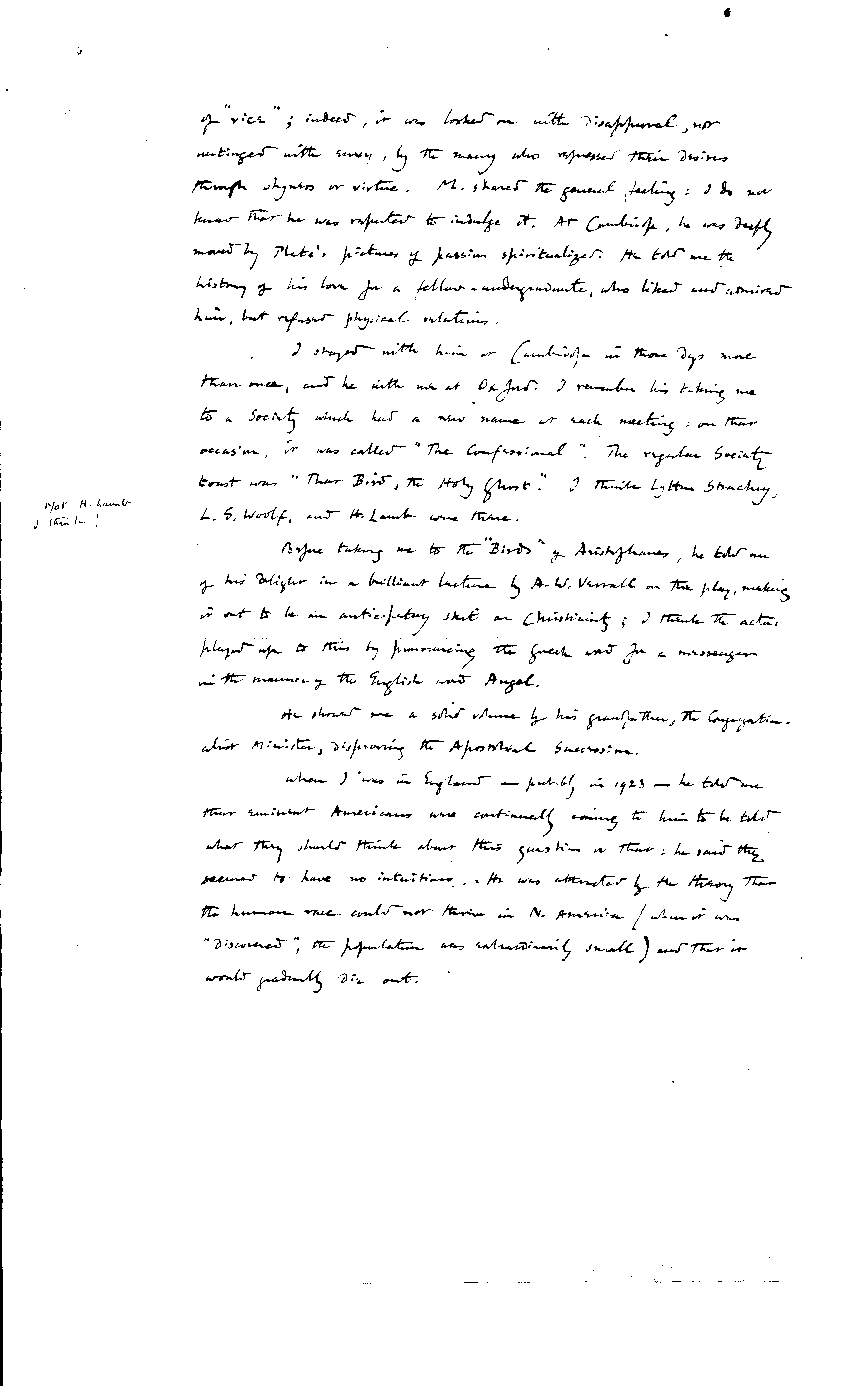 of "vice"; indeed, it was looked on with disapproval, not
untinged with envy, by the many who repressed their desires
through shyness or virtue. M. shared the general feeling: I do not
know that he was reputed to indulge it. At Cambridge, he was deeply
moved by Plato's pictures of passion spiritualized. He told me the
history of his love for a fellow-undergraduate, who liked and admired
him, but refused physical relations.
I stayed with him at Cambridge in those days more
than once, and he with me at Oxford. I remember his taking me
to a Society which had a new name at each meeting: on that
occasion, it was called "The Confessional". The regular Society
toast was "That Bird, the Holy Ghost." I think Lytton Strachey,
L. S. Woolf, and H. Lamb were there.
Not H. Lamb
I think!
Before taking me to the "Birds" of Aristophanes, he told me
of his delight in a brilliant lecture by A. W. Verrall on the play, making
it out to be an anticipatory skit on Christianity; I think the actors
played up to this by pronouncing the Greek word for a messenger
in the manner of the English word Angel.
He showed me a solid volume by his grandfather, the Congregation-
alist Minister, disproving the Apostolical Succession.
When I was in England — probably in 1923 — he told me
that eminent Americans were continually coming to him to be told
what they should think about this question or that: he said they
seemed to have no intuitions. He was attracted by the theory that
the human race could not thrive in N. America (when it was
"discovered", the population was extraordinarily small) and that it
would gradually die out.